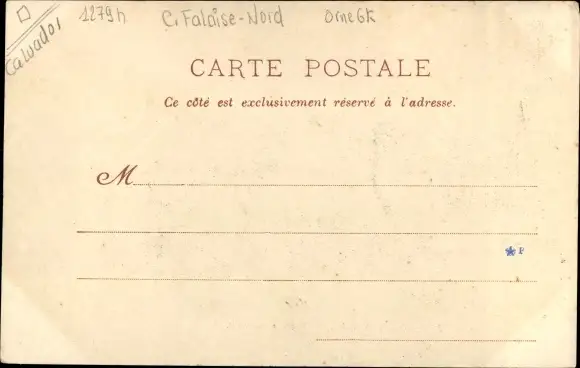 Calvados
1279h C. Falaise-Nord Orne 6k
CARTE POSTALE
Ce côté est exclusivement réservé à l'adresse.
M
P